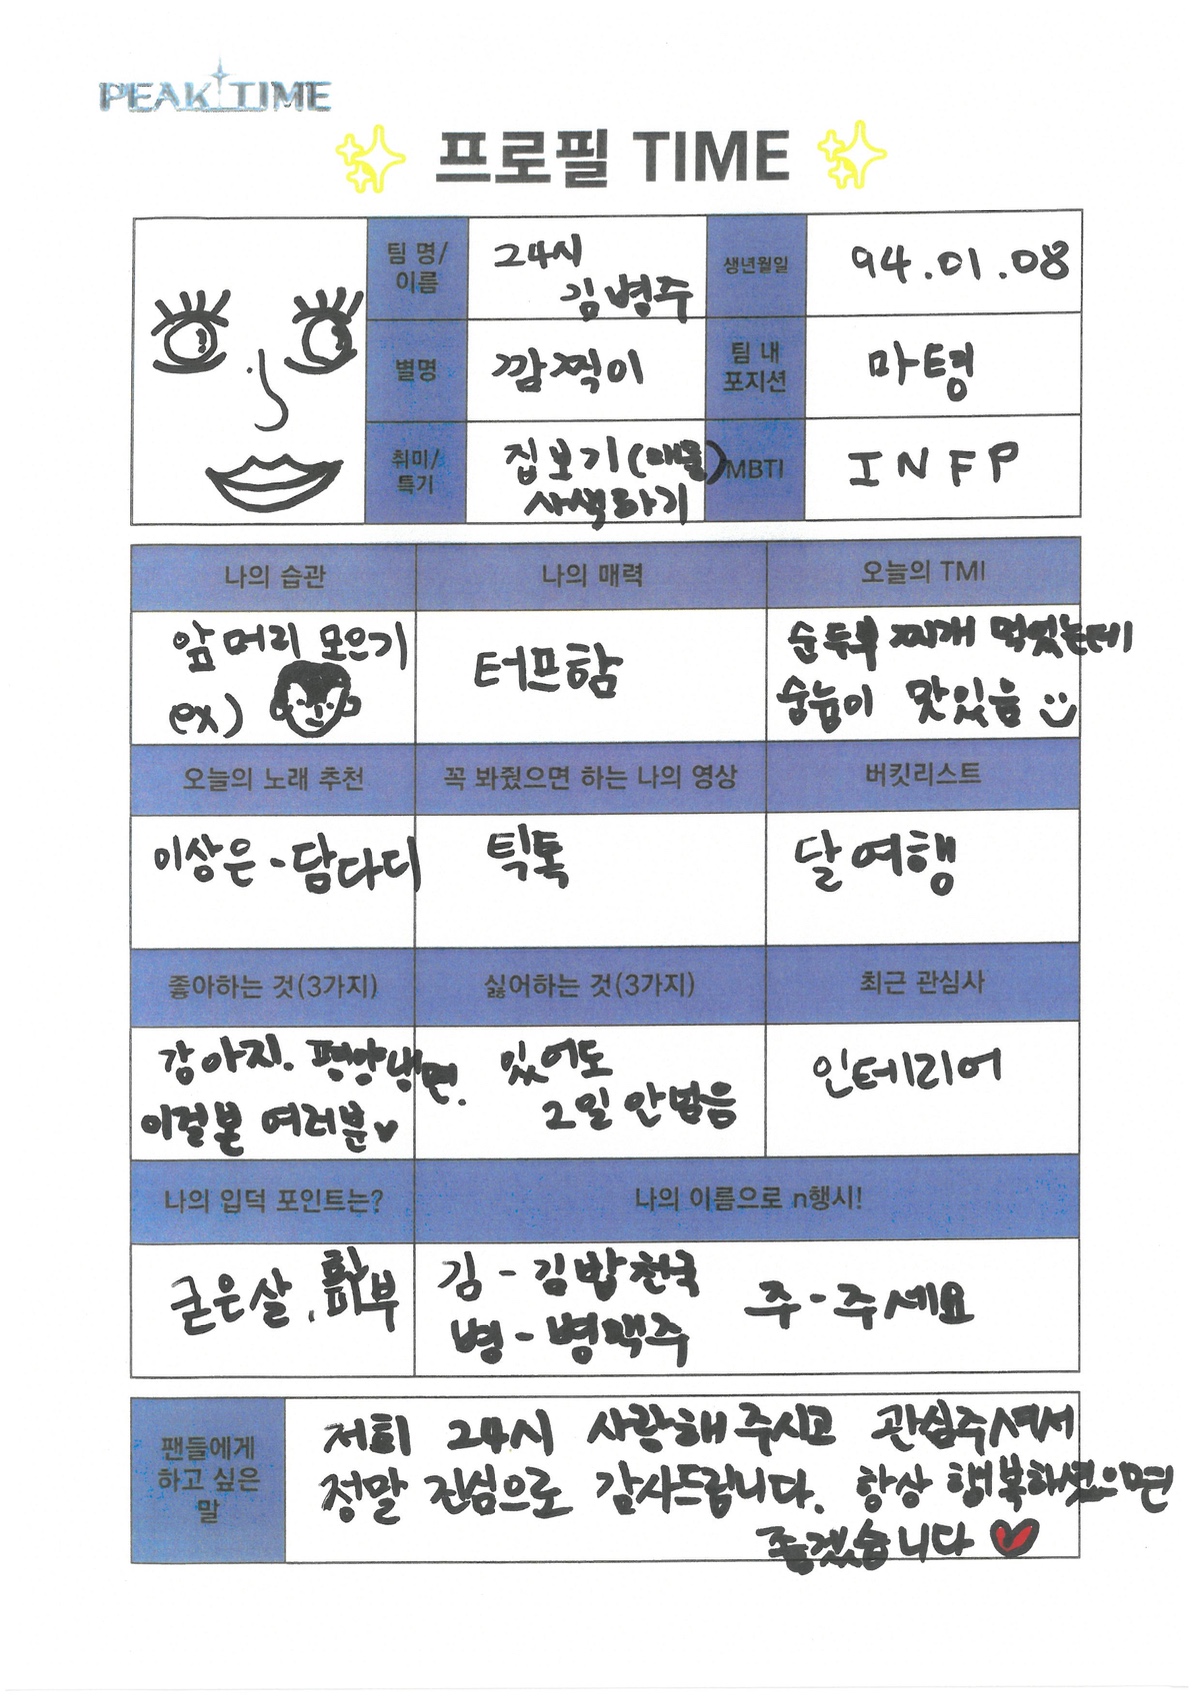 PEAK TIME
프로필 TIME
팀 명/
이름
24시
김병주
생년월일
94.01.08
별명
깜찍이
팀 내
포지션
마텽
취미/
특기
집보기(매물)
사색하기
MBTI
INFP
나의 습관
나의 매력
오늘의 TMI
앞머리 모으기
ex)
터프함
순두부 찌개 먹었는데
숭늉이 맛있음
오늘의 노래 추천
꼭 봐줬으면 하는 나의 영상
버킷리스트
이상은 - 담다디
틱톡
달여행
좋아하는 것(3가지)
싫어하는 것(3가지)
최근 관심사
강아지. 평양냉면.
이걸본 여러분
있어도
2일 안밉음
인테리어
나의 입덕 포인트는?
나의 이름으로 n행시!
굳은살, 피부
김 - 김밥천국
병 - 병맥주
주 - 주세요
팬들에게
하고 싶은
말
저희 24시 사랑해주시고 관심주셔서
정말 진심으로 감사드립니다. 항상 행복하셨으면
좋겠습니다